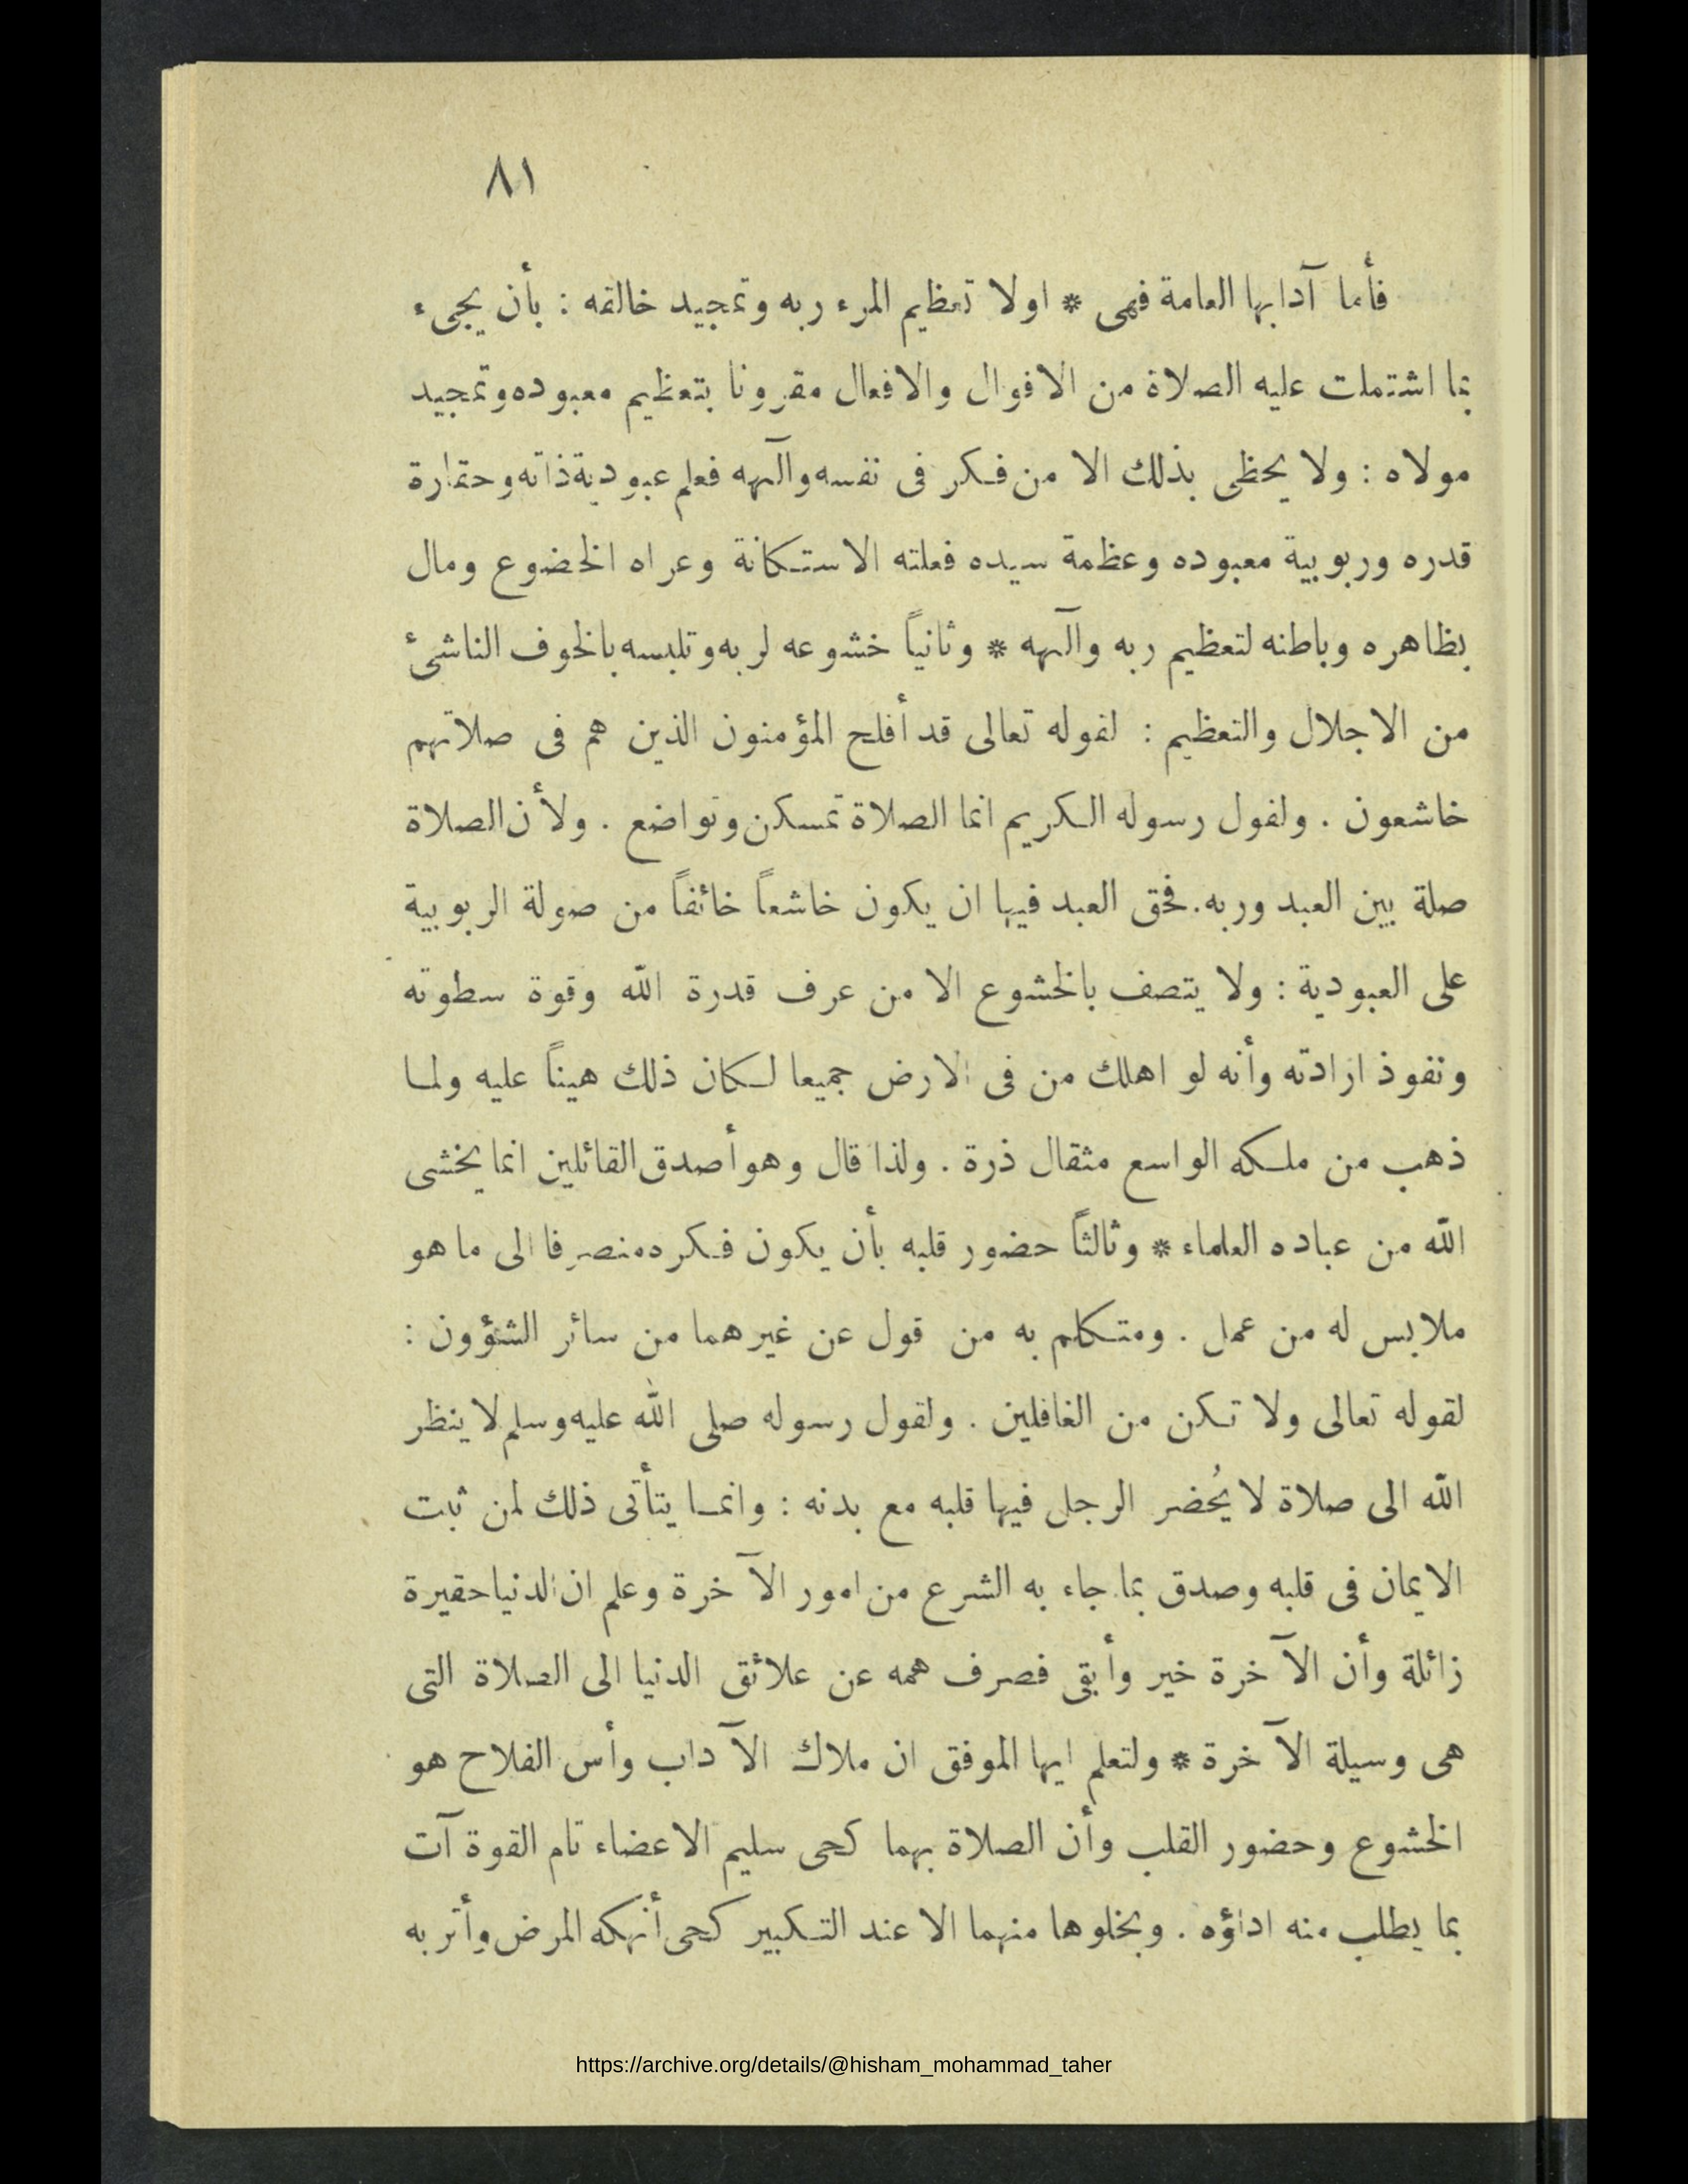 ٨١
فأما آدابها العامة فهى * اولا تعظيم المرء ربه وتمجيد خالقه : بأن يجىء
بما اشتملت عليه الصلاة من الاقوال والافعال مقرونا بتعظيم معبوده وتمجيد
مولاه : ولا يحظى بذلك الا من فكر فى نفسه وآلهه فعلم عبودية ذاته وحقارة
قدره وربوبية معبوده وعظمة سيده فعلته الاستكانة وعراه الخضوع ومال
بظاهره وباطنه لتعظيم ربه وآلهه * وثانياً خشوعه لربه وتلبسه بالخوف الناشئ
من الاجلال والتعظيم : لقوله تعالى قد أفلح المؤمنون الذين هم فى صلاتهم
خاشعون . ولقول رسوله الكريم انما الصلاة تمسكن وتواضع . ولأن الصلاة
صلة بين العبد وربه. فحق العبد فيها ان يكون خاشعاً خائفاً من صولة الربوبية
على العبودية : ولا يتصف بالخشوع الا من عرف قدرة الله وقوة سطوته
ونفوذ ارادته وأنه لو اهلك من فى الارض جميعا لكان ذلك هيناً عليه ولما
ذهب من ملكه الواسع مثقال ذرة . ولذا قال وهو أصدق القائلين انما يخشى
الله من عباده العلماء * وثالثاً حضور قلبه بأن يكون فكره منصرفا الى ما هو
ملابس له من عمل . ومتكلم به من قول عن غيرهما من سائر الشؤون :
لقوله تعالى ولا تكن من الغافلين . ولقول رسوله صلى الله عليه وسلم لا ينظر
الله الى صلاة لا يُحضر الرجل فيها قلبه مع بدنه : وانما يتأتى ذلك لمن ثبت
الايمان فى قلبه وصدق بما جاء به الشرع من امور الآخرة وعلم ان الدنيا حقيرة
زائلة وأن الآخرة خير وأبقى فصرف همه عن علائق الدنيا الى الصلاة التى
هى وسيلة الآخرة * ولتعلم ايها الموفق ان ملاك الآداب وأس الفلاح هو
الخشوع وحضور القلب وأن الصلاة بهما كحى سليم الاعضاء تام القوة آت
بما يطلب منه اداؤه . وبخلوها منهما الا عند التكبير كحى أنهكه المرض وأثر به
https://archive.org/details/@hisham_mohammad_taher